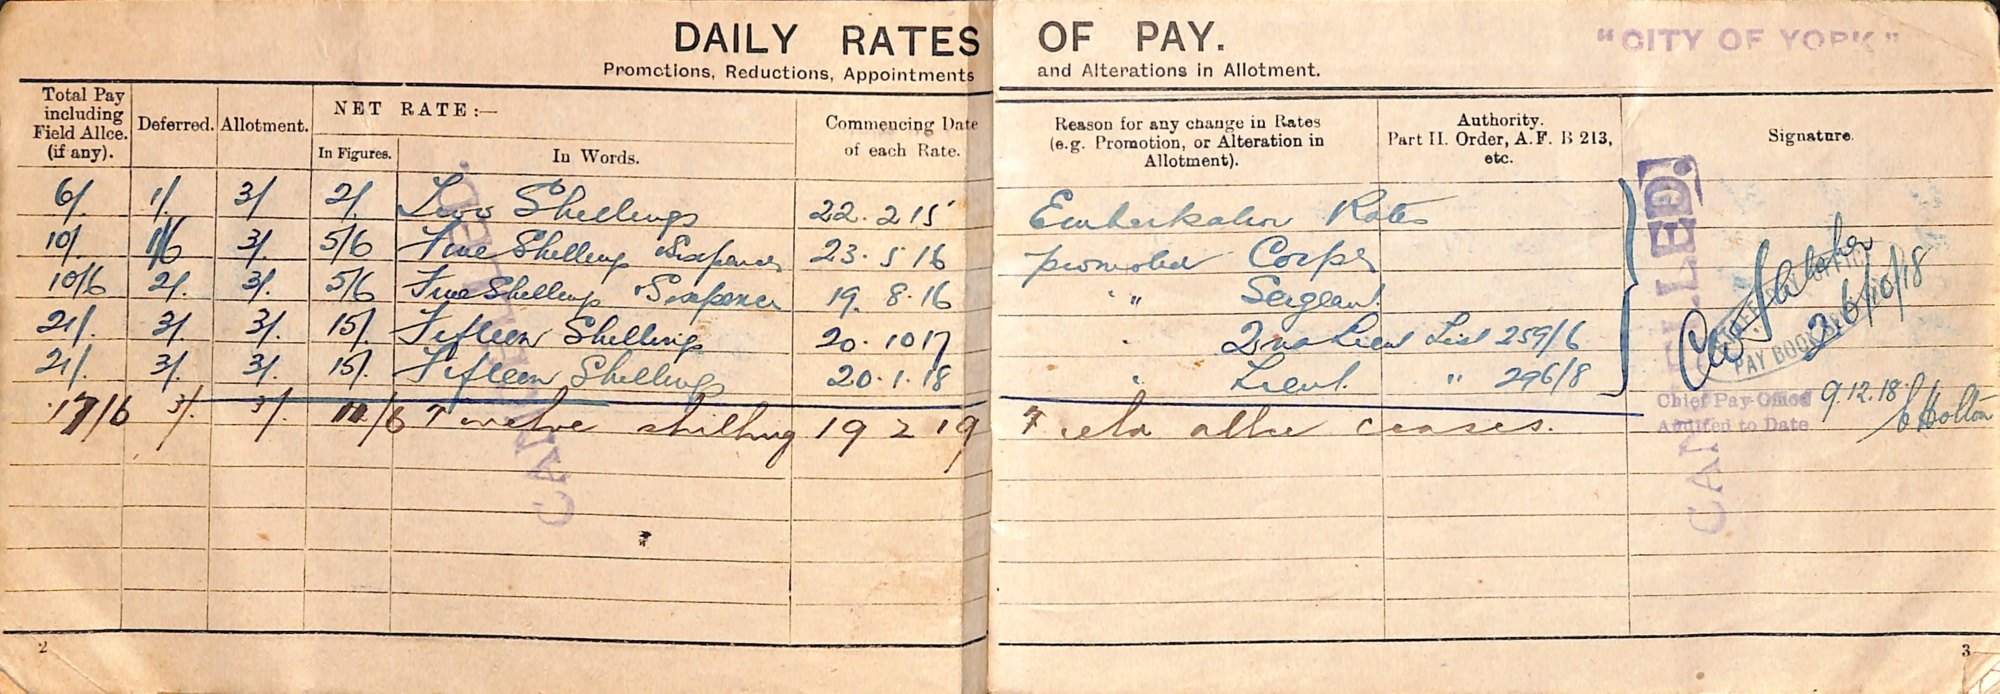 DAILY RATES OF PAY.
"CITY OF YORK"
Promotions, Reductions, Appointments and Alterations in Allotment.
Total Pay including Field Allce. (if any). Deferred. Allotment. NET RATE:— In Figures. In Words. Commencing Date of each Rate. Reason for any change in Rates (e.g. Promotion, or Alteration in Allotment). Authority. Part II. Order, A.F. B 213, etc. Signature.
6/. 1/. 3/ 2/. Two Shillings 22. 2 15 Embarkation Rates
10/. 1/6 3/. 5/6 Five Shillings Sixpence 23. 5 16 promoted Corpl
10/6 2/. 3/. 5/6 Five Shillings Sixpence 19. 8. 16 " Sergeant.
21/. 3/. 3/. 15/. Fifteen Shillings 20. 10 17 " 2nd Lieut List 259/6
21/. 3/. 3/. 15/. Fifteen Shillings 20. 1. 18 " Lieut. " 296/8
17/6 3/. 3/. /6 Twelve shilling 19 2 19 Field allce ceases.
CANCELLED.
CANCELLED.
26/10/18
PAY BOOK
Chief Pay Office
Audited to Date
9.12.18
Holton
2
3